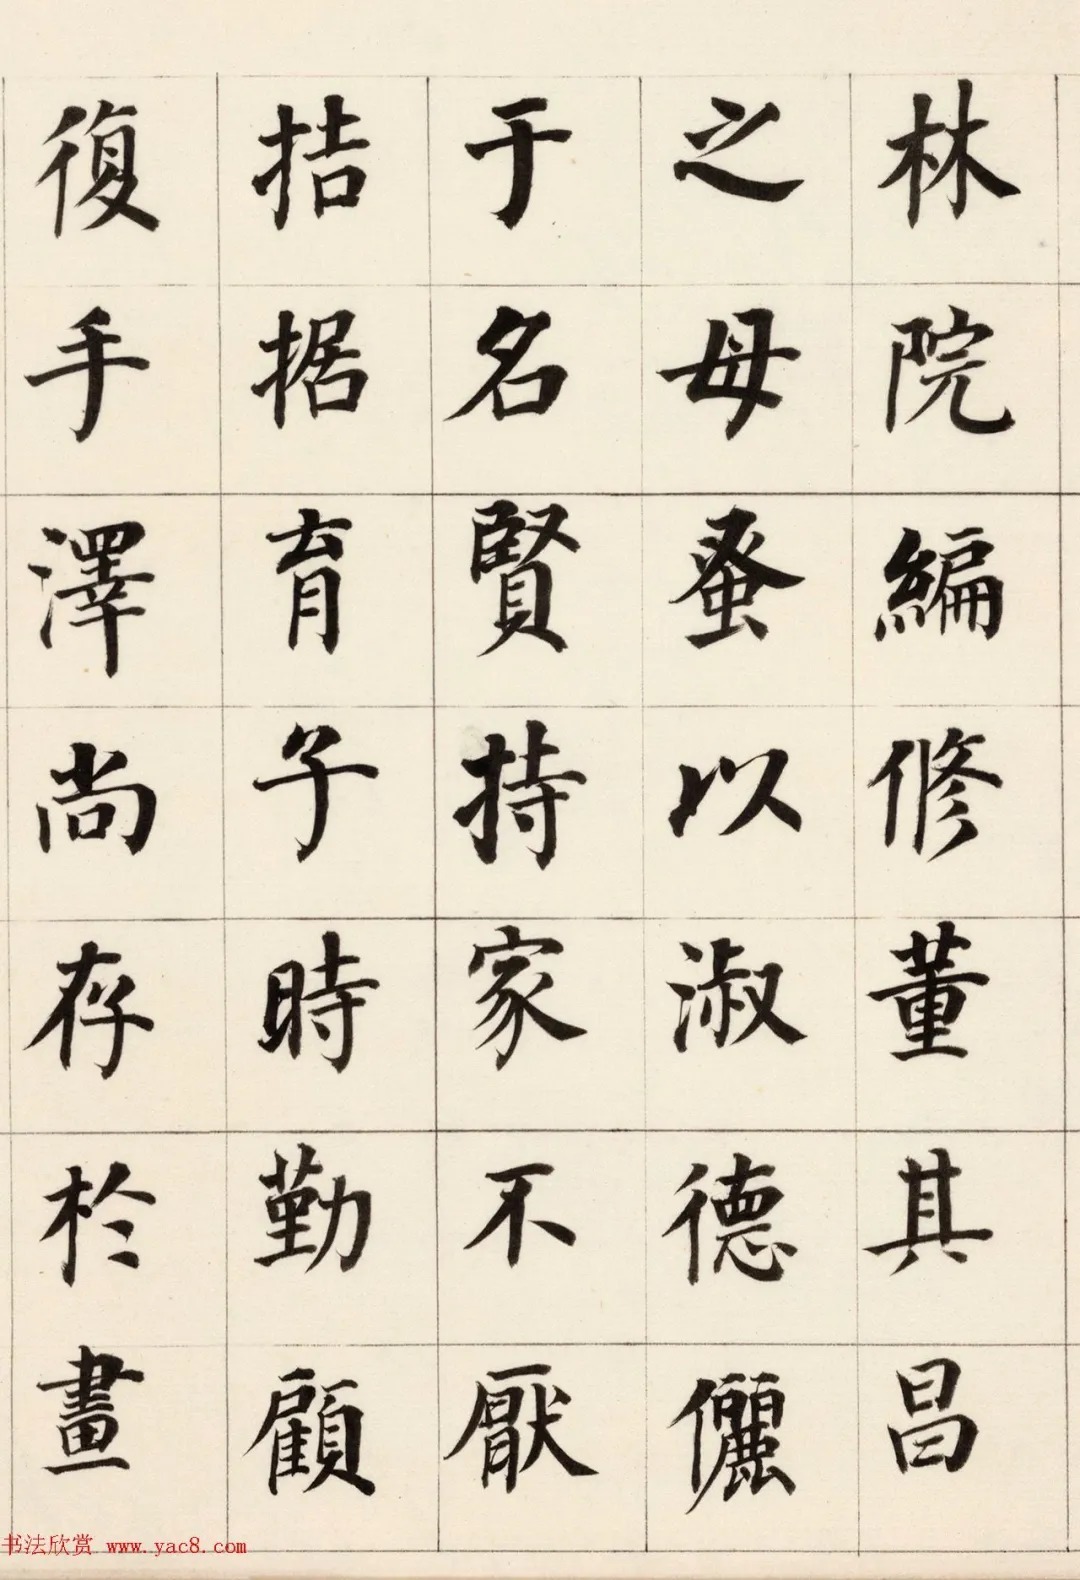 林院編修董其昌
之母蚤以淑德儷
于名賢持家不厭
拮据育子時勤顧
復手澤尚存於畫
书法欣赏 www.yac8.com